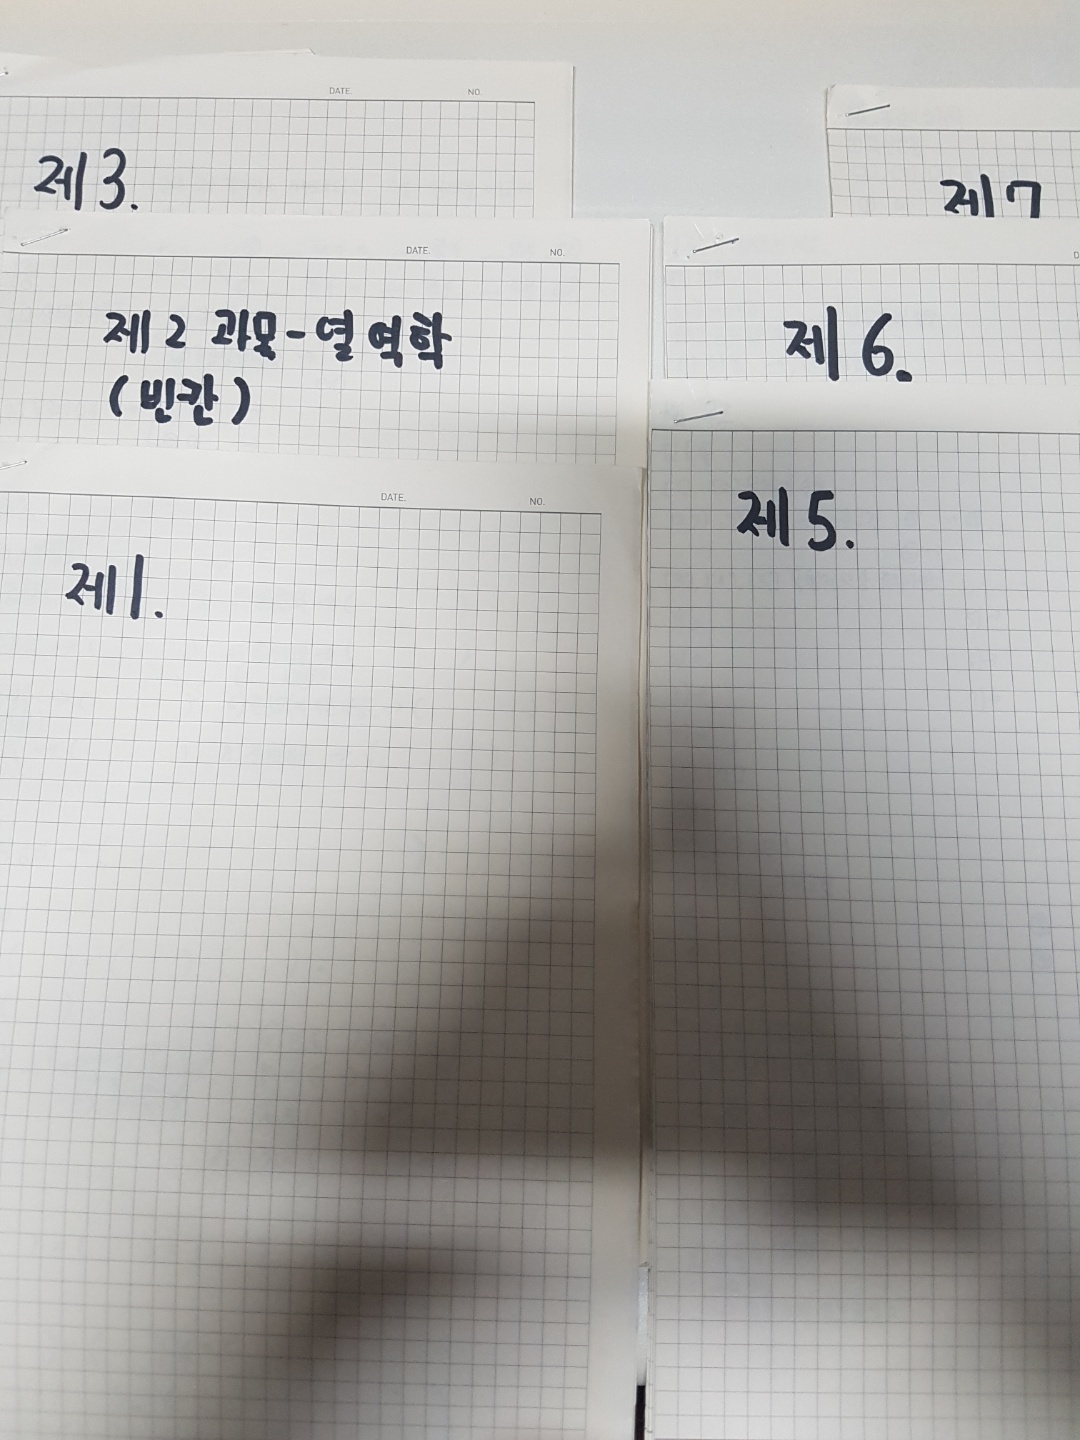 DATE. NO.
제3.
제7
DATE. NO.
제2 과목-열역학
(빈칸)
D
제6.
DATE. NO.
제1.
제5.